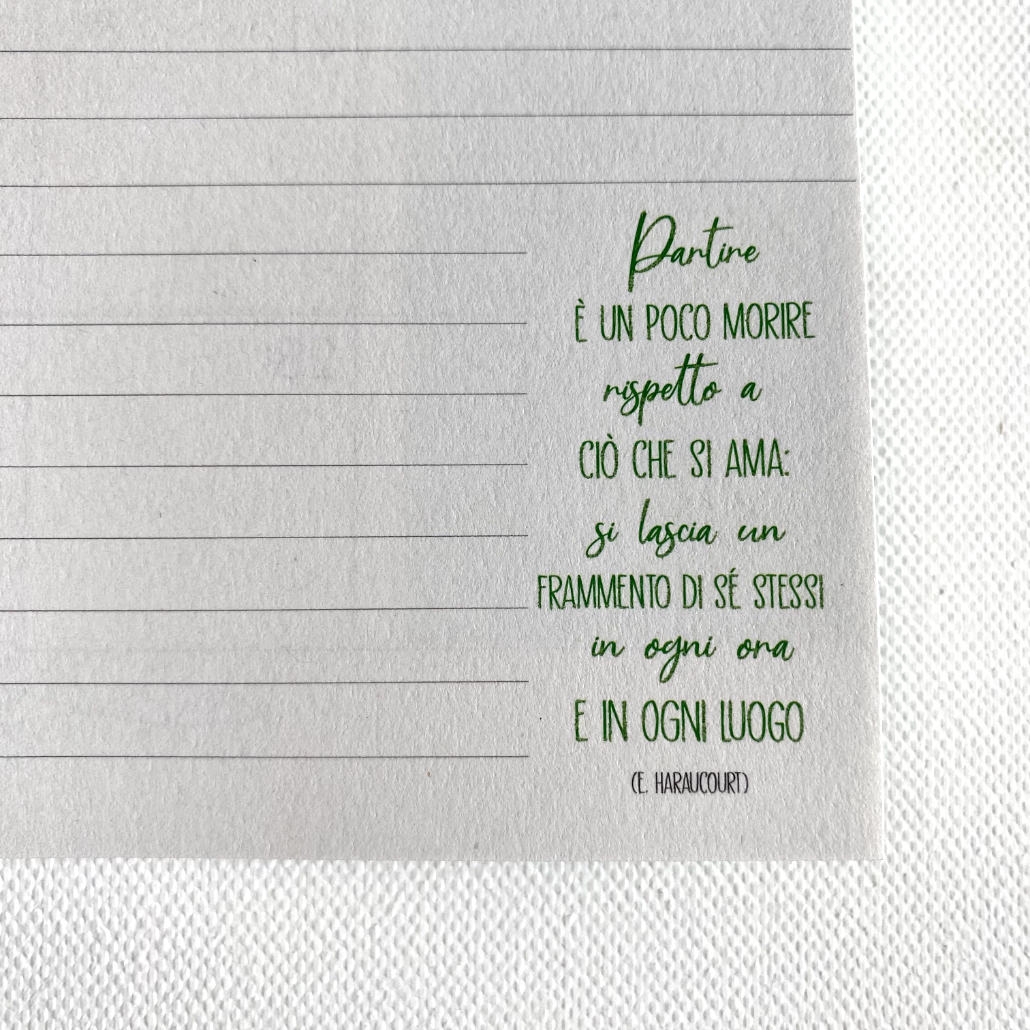 Partire
È UN POCO MORIRE
rispetto a
CIÒ CHE SI AMA:
si lascia un
FRAMMENTO DI SÉ STESSI
in ogni ora
E IN OGNI LUOGO
(E. HARAUCOURT)